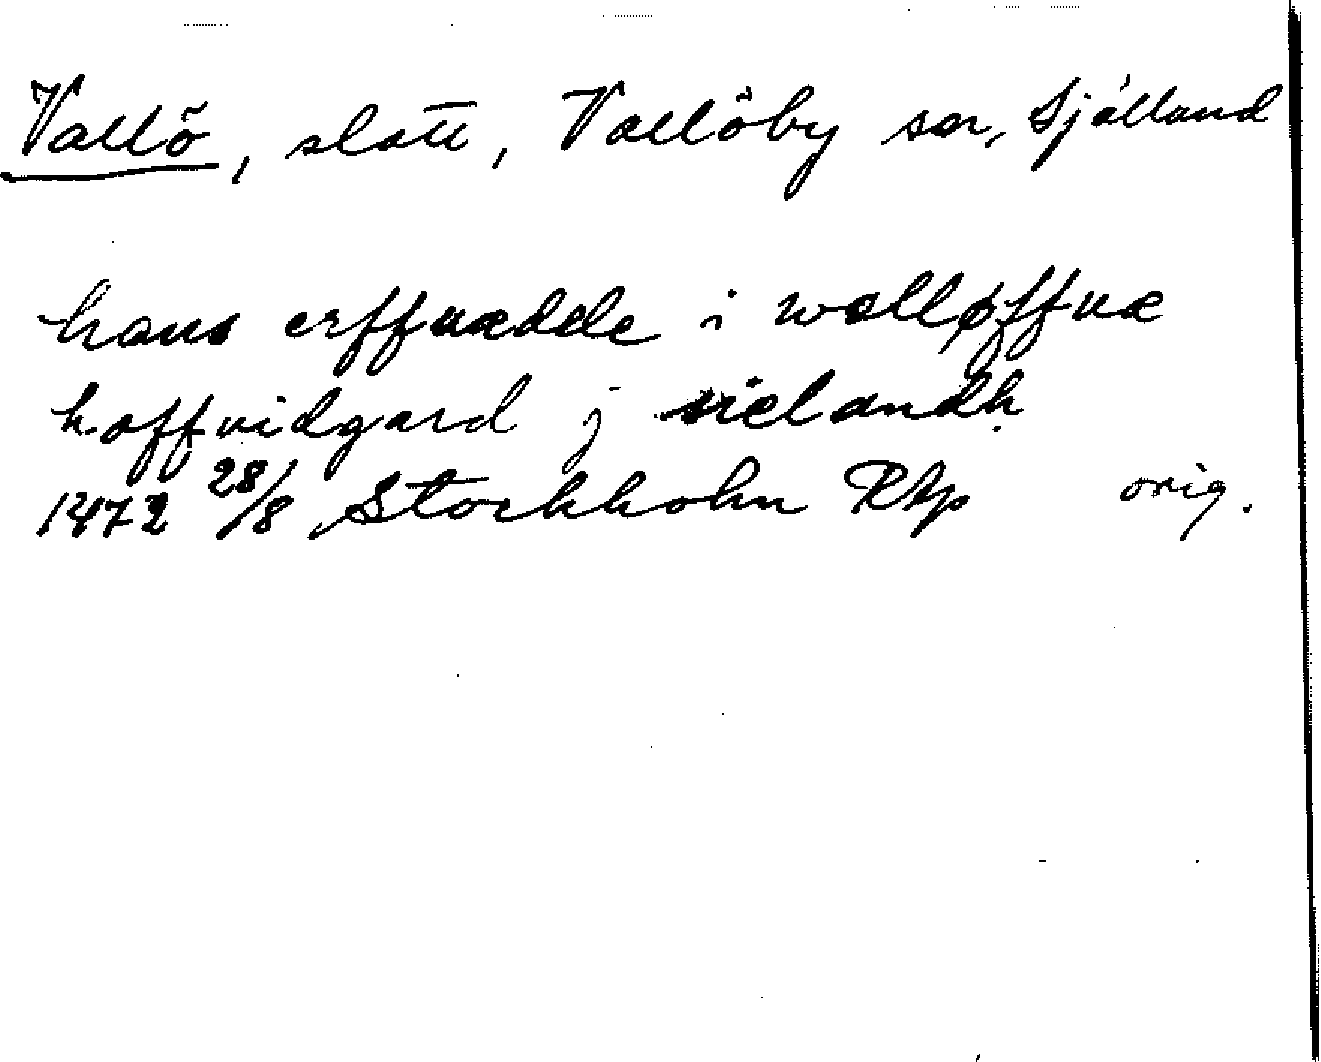 Vallö, slott, Vallöby sn, Sjálland
hans erffuædele i walløffuæ
hoffuidgard j sielandh
1472 28/8 Stockholm RAp orig.